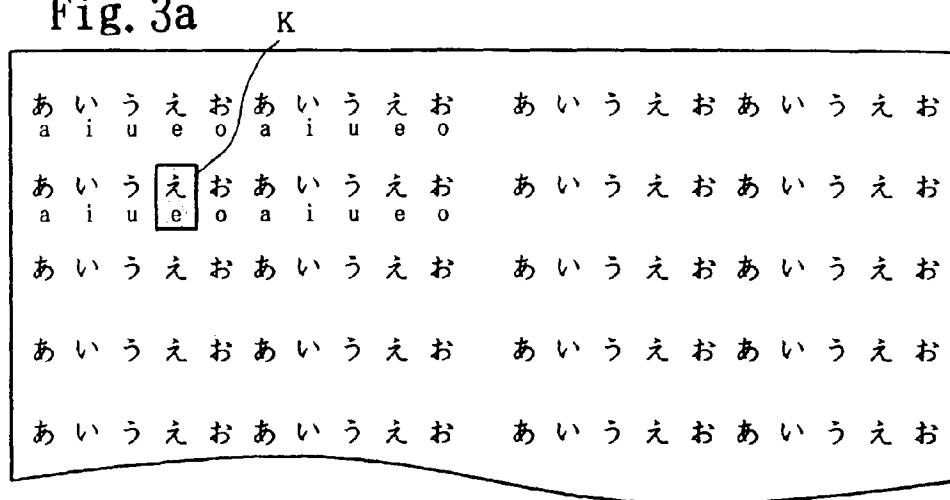 Fig. 3a
K
あいうえおあいうえお あいうえおあいうえお
a i u e o a i u e o
あいうえおあいうえお あいうえおあいうえお
a i u e o a i u e o
あいうえおあいうえお あいうえおあいうえお
あいうえおあいうえお あいうえおあいうえお
あいうえおあいうえお あいうえおあいうえお